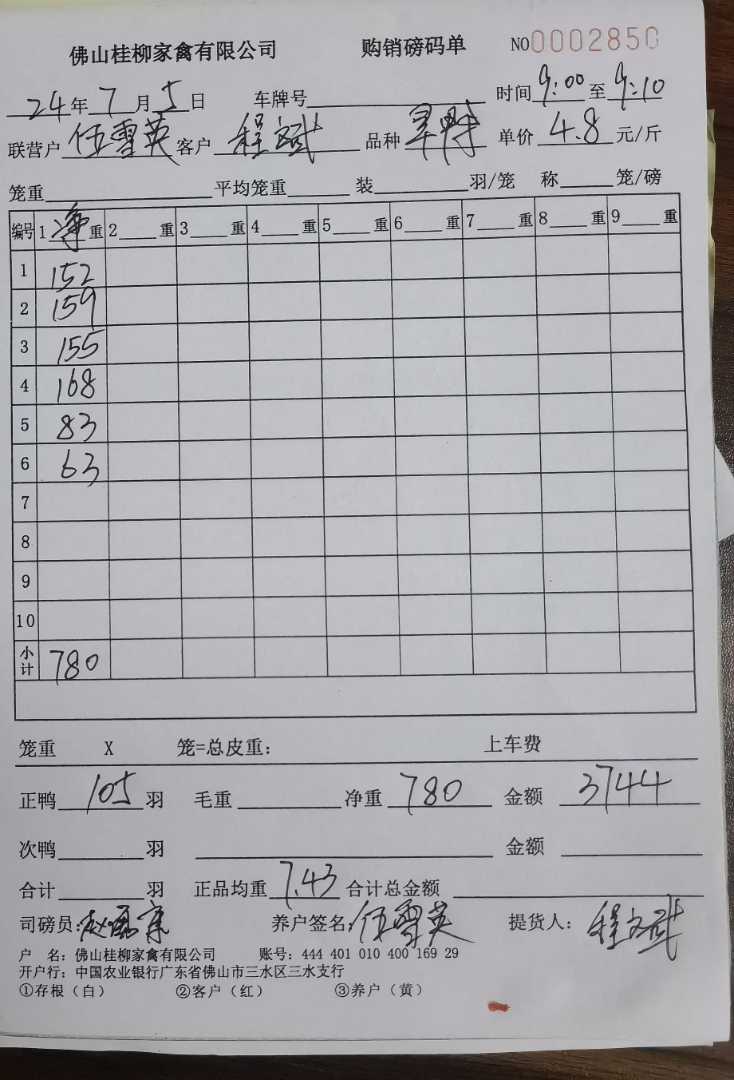 佛山桂柳家禽有限公司 购销磅码单 NO0002850
24年7月5日 车牌号 时间9:00至9:10
联营户 伍雪英 客户 程斌 品种 单价 4.8 元/斤
笼重 平均笼重 装 羽/笼 称 笼/磅
编号 1 净 重 2 重 3 重 4 重 5 重 6 重 7 重 8 重 9 重
1 152
2 159
3 155
4 168
5 83
6 63
7
8
9
10
小计 780
笼重 X 笼=总皮重: 上车费
正鸭 105 羽 毛重 净重 780 金额 3744
次鸭 羽 金额
合计 羽 正品均重 7.43 合计总金额
司磅员: 养户签名: 伍雪英 提货人: 程斌
户 名: 佛山桂柳家禽有限公司 账号: 444 401 010 400 169 29
开户行: 中国农业银行广东省佛山市三水区三水支行
①存根（白） ②客户（红） ③养户（黄）